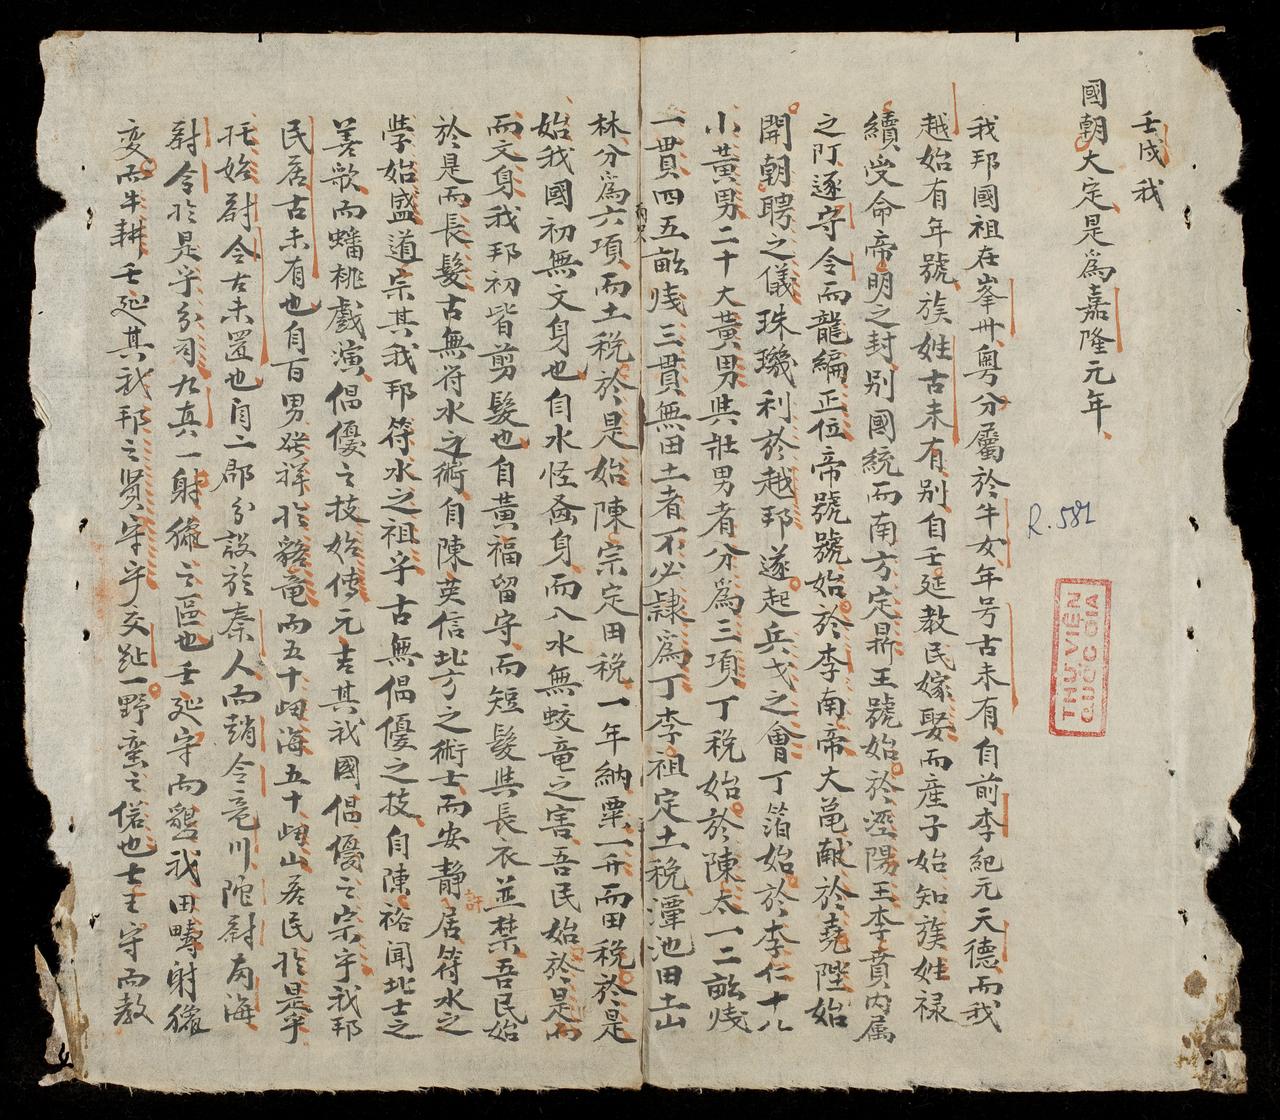 壬戌我
國朝大定是爲嘉隆元年
我邦國祖在峯州粵分屬於牛女年号古未有自前李紀元天德而我
越始有年號族姓古未有别自壬延教民嫁娶而産子始知族姓禄
續受命帝明之封别國統而南方定鼎王號始於涇陽王李賁内属
之阝逐守令而龍編正位帝號號始於李南帝大黽献於堯陛始
開朝聘之儀珠璣利於越邦遂起兵戈之會丁簿始於李仁十八
小黄男二十大黄男與壯男者分爲三項丁税始於陳太一二畝烖
一貫四五畝烖三貫無田土者不必隷爲丁李祖定土税潭池田土山
林分爲六項而土税於是始陳宗定田税一年納粟一升而田税於是
始我國初無文身也自水怪螽身而入水無蛟竜之害吾民始於是而
而文身我邦初皆剪髮也自黄福留守而短髮與長衣並禁吾民始
於是而長髮古無符水之術自陳英信北方之術士而安静居符水之
許
學始盛道宗其我邦符水之祖乎古無倡優之技自陳裕聞北士之
善歌而蟠桃戲演倡優之技始传元吉其我國倡優之宗乎我邦
民居古未有也自百男發祥於貉竜而五十歸海五十歸山居民於是乎
托始尉令古未置也自二郡分設於秦人而趙令竜川陀尉南海
尉令於是乎分司九真一射獵之區也壬延守而墾我田疇射獵
変而牛耕壬延其我邦之賢守乎交趾一野蛮之俗也士王守而教
R.581
THƯ VIỆN
QUỐC GIA